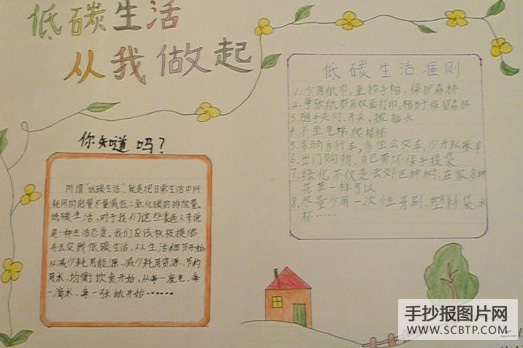 低碳生活
从我做起
你知道吗？
所谓"低碳生活"就是把日常生活中所
耗用的能量尽量减低二氧化碳的排放量。
低碳生活，对于我们这些普通人来说
是一种生活态度。我们应该积极提倡
并去实践低碳生活，从生活细节开始
从减少耗用能源、减少耗用资源、节约
用水、均衡饮食开始，从每一度电、每
一滴水、每一张纸开始……
低碳生活准则
1.少用纸巾，重拾手帕，保护森林
2.每张纸都双面打印，相当于保留森林
3.随手关灯、开关、拔插头
4.不坐电梯爬楼梯
5.多骑自行车，多坐公交车，少开私家车
6.出门购物，自己带环保手提袋
7.绿化不仅是去郊区种树，在家多种
花草一样可以
8.尽量少用一次性牙刷、塑料袋、水
杯……
手抄报图片网
WWW.SCBTP.COM